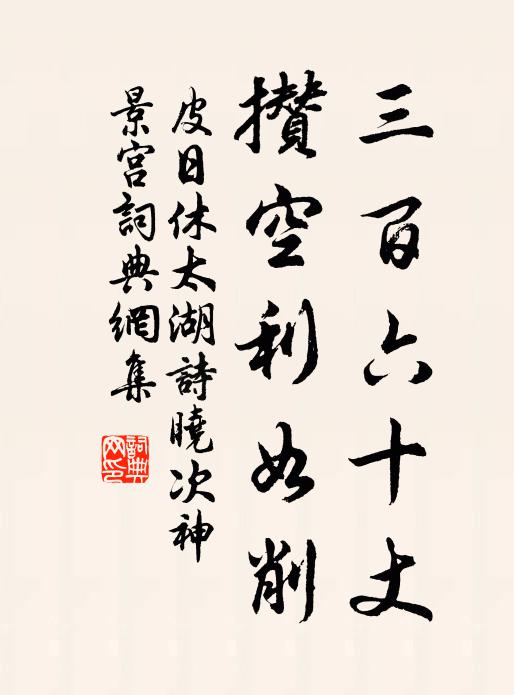 三百六十丈
攢空利如削
皮日休太湖詩曉次神
景宮詞典網集
詞典
网印